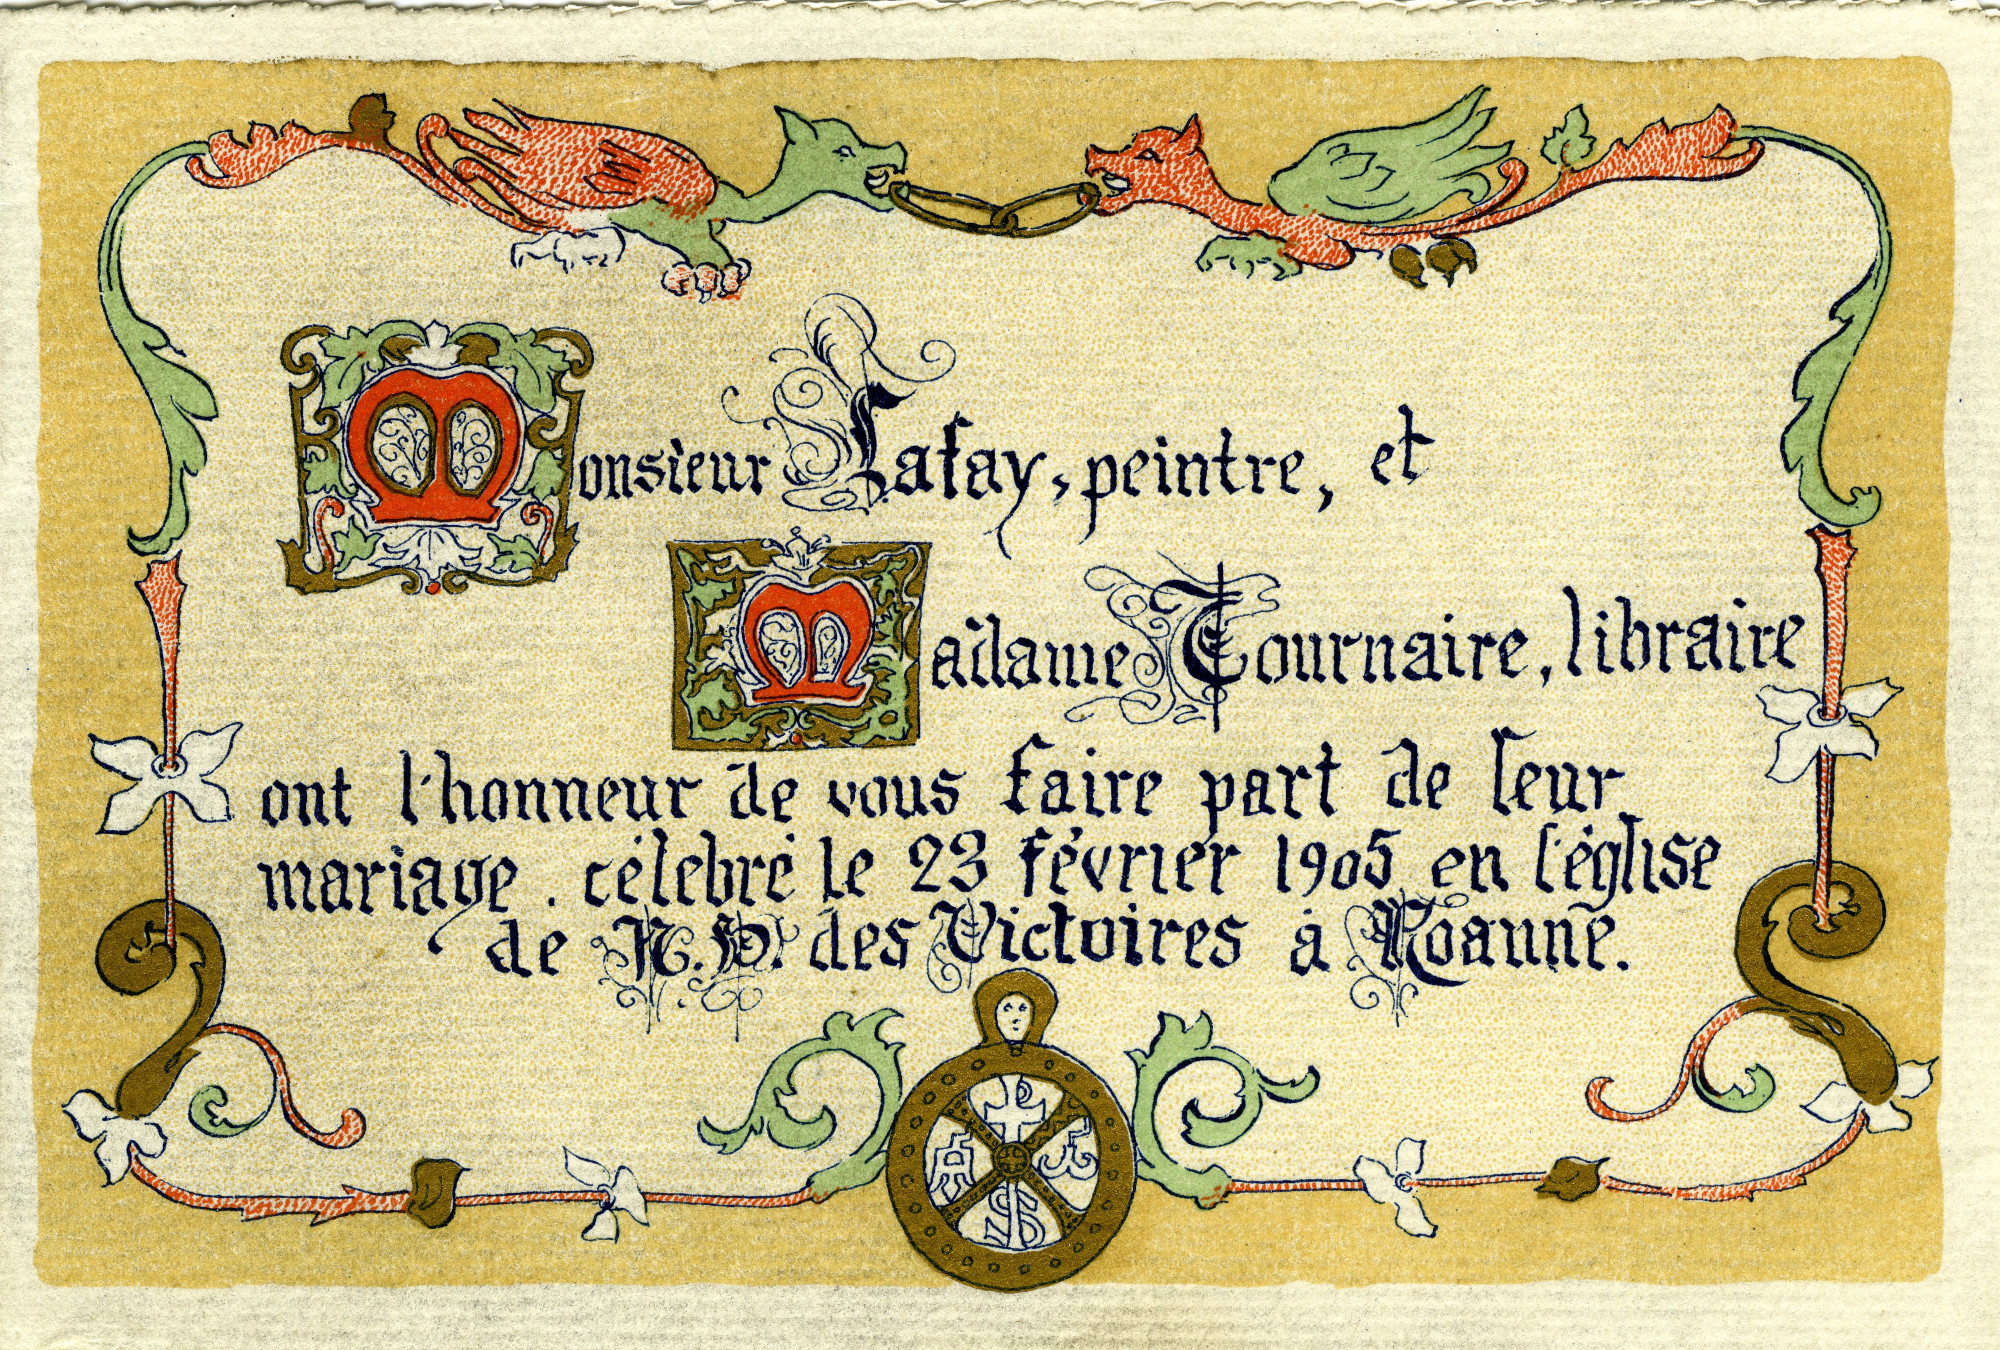 Monsieur Lafay, peintre, et
Madame Tournaire, libraire
ont l'honneur de vous faire part de leur
mariage. célébré le 23 février 1905 en l'église
de N. D. des Victoires à Roanne.